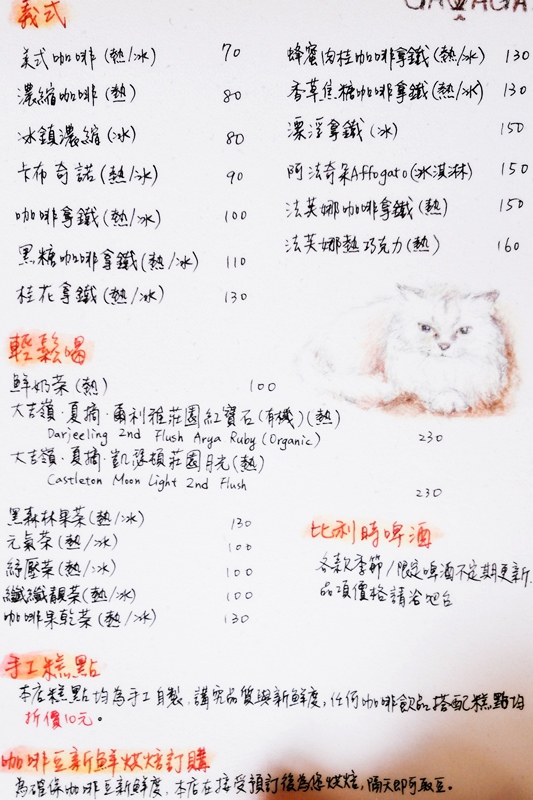 義式
美式咖啡(熱/冰) 70
濃縮咖啡(熱) 80
冰鎮濃縮(冰) 80
卡布奇諾(熱/冰) 90
咖啡拿鐵(熱/冰) 100
黑糖咖啡拿鐵(熱/冰) 110
桂花拿鐵(熱/冰) 130
蜂蜜肉桂咖啡拿鐵(熱/冰) 130
香草焦糖咖啡拿鐵(熱/冰) 130
漂浮拿鐵(冰) 150
阿法奇朵Affogato(冰淇淋) 150
法芙娜咖啡拿鐵(熱) 150
法芙娜熱巧克力(熱) 160
輕鬆喝
鮮奶茶(熱) 100
大吉嶺·夏摘·爾利雅莊園紅寶石(有機)(熱)
Darjeeling 2nd Flush Arya Ruby (Organic) 230
大吉嶺·夏摘·凱瑟頓莊園月光(熱)
Castleton Moon Light 2nd Flush 230
黑森林果茶(熱/冰) 130
元氣茶(熱/冰) 100
紓壓茶(熱/冰) 100
纖纖靚茶(熱/冰) 100
咖啡果乾茶(熱/冰) 130
比利時啤酒
各款季節/限定啤酒不定期更新,
品項價格請洽吧台
手工糕點
本店糕點均為手工自製,講究品質與新鮮度,任何咖啡飲品搭配糕點均
折價10元。
咖啡豆新鮮烘焙訂購
為確保咖啡豆新鮮度,本店在接受預訂後為您烘焙,隔天即可取豆。